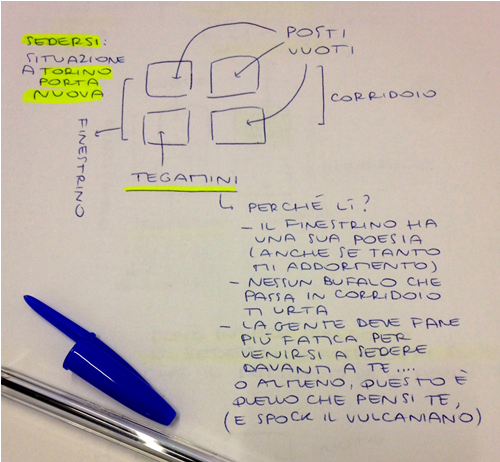 SEDERSI:
SITUAZIONE
A TORINO
PORTA
NUOVA
POSTI
VUOTI
CORRIDOIO
FINESTRINO
TEGAMINI
PERCHÉ LÌ?
- IL FINESTRINO HA
UNA SUA POESIA
(ANCHE SE TANTO
MI ADDORMENTO)
- NESSUN BUFALO CHE
PASSA IN CORRIDOIO
TI URTA
- LA GENTE DEVE FARE
PIÙ FATICA PER
VENIRSI A SEDERE
DAVANTI A TE....
O ALMENO, QUESTO È
QUELLO CHE PENSI TE,
(E SPOCK IL VULCANIANO)